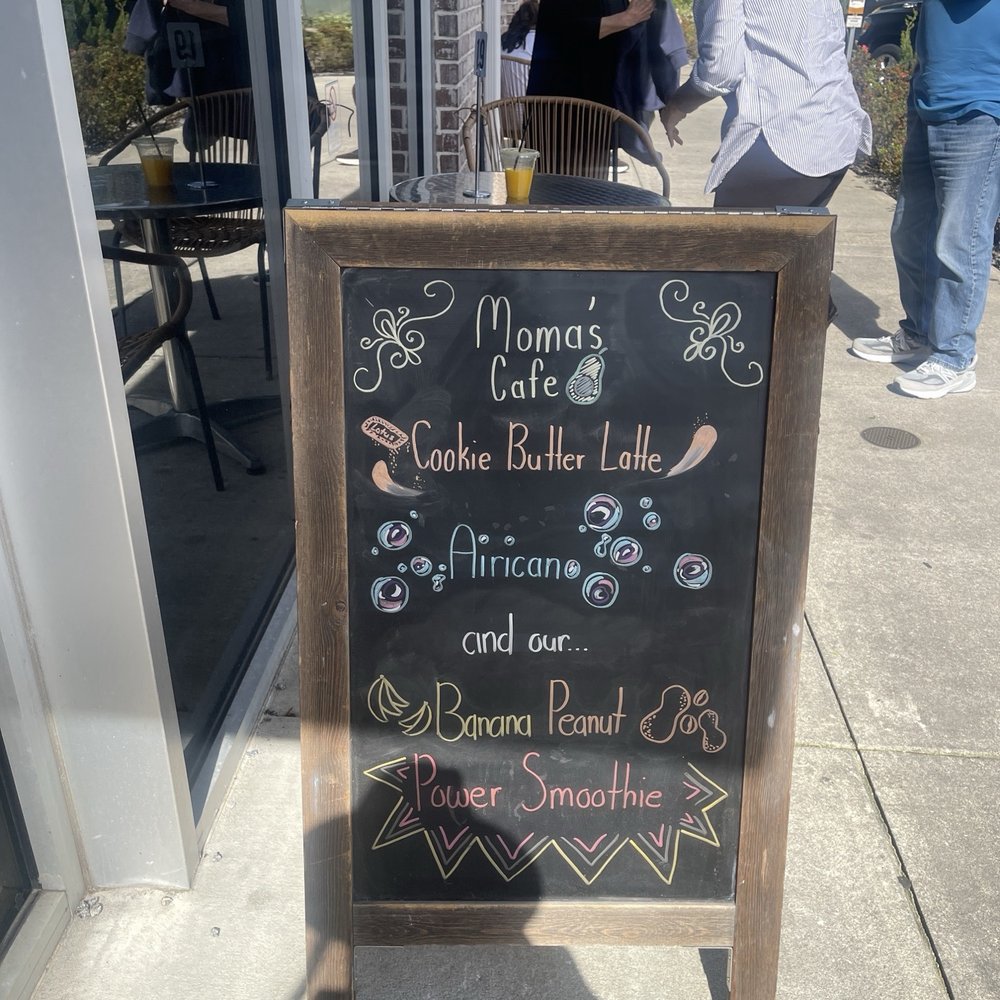 19
Moma's
Cafe
Lotus
Cookie Butter Latte
Airicano
and our...
Banana Peanut
Power Smoothie